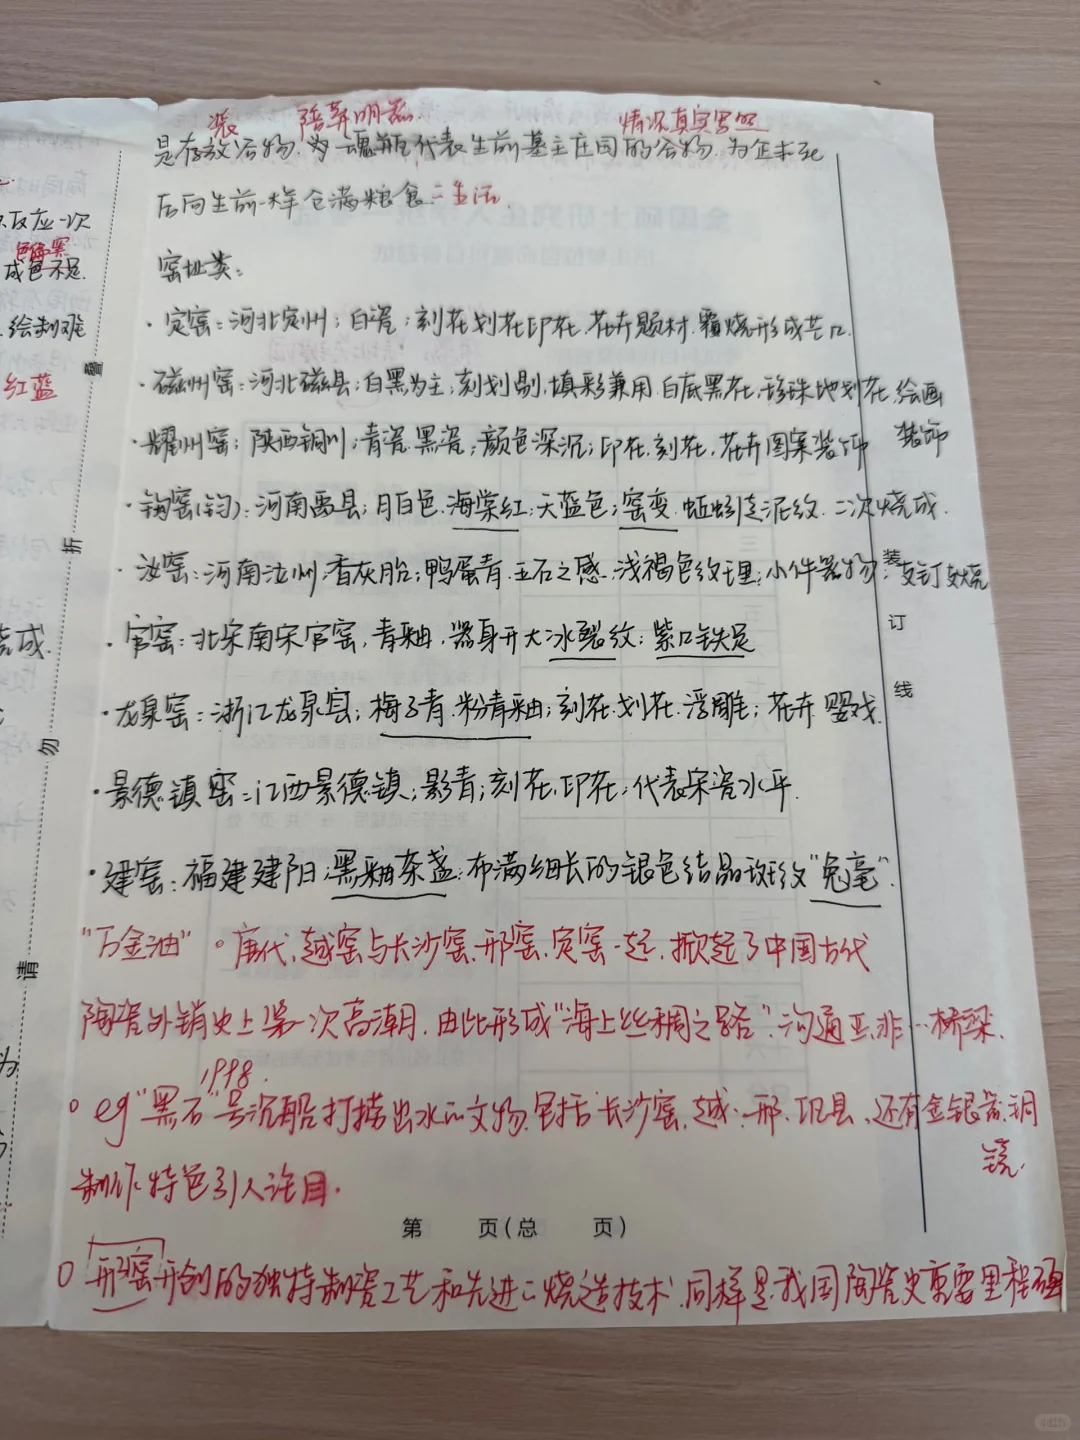 装 陪葬明器 情况真实写照
是存放谷物,为"魂瓶"代表生前墓主庄园的谷物,为企求死
后同生前一样仓满粮食二生活
反应一次
色海寨
成色不足
窑址类:
·定窑:河北定州;白瓷;刻花划花印花、花卉题材、覆烧形成芒口.
绘制难
叠
红蓝
·磁州窑:河北磁县;白黑为主;刻划剔,填彩兼用、白底黑花、珍珠地划花,绘画
装饰
·耀州窑;陕西铜川;青瓷、黑瓷;颜色深沉;印花、刻花、花卉图案装饰
·钧窑(钧):河南禹县;月白色、海棠红、天蓝色;窑变、蚯蚓走泥纹、二次烧成.
折
·汝窑:河南汝州;香灰胎;鸭蛋青、玉石之感、浅褐色纹理;小件器物;支钉支烧
装
订
线
·官窑:北宋南宋官窑,青釉,器身开大冰裂纹;紫口铁足
成.
·龙泉窑:浙江龙泉县;梅子青、粉青釉;刻花、划花、浮雕;花卉、婴戏.
勿
·景德镇窑:江西景德镇;影青;刻花,印花;代表宋瓷水平.
·建窑:福建建阳;黑釉茶盏;布满细长的银色结晶斑纹"兔毫".
"万金油" 。唐代,越窑与长沙窑、邢窑、定窑一起,掀起了中国古代
请
陶瓷外销史上第一次高潮,由此形成"海上丝绸之路",沟通亚、非…桥梁.
为
1998.
。eg"黑石"号沉船打捞出水二文物,包括长沙窑、越、邢、巩县,还有金银器、铜
镜.
制作特色引人注目.
第 页(总 页)
。邢窑开创的独特制瓷工艺和先进二烧造技术,同样是我国陶瓷史重要里程碑